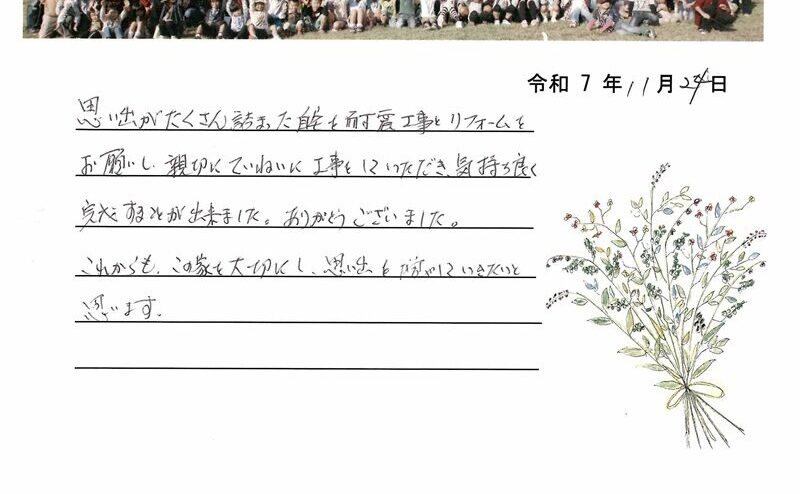 令和 7 年 11 月 24 日
思い出がたくさん詰まった自宅を耐震工事とリフォームを
お願いし、親切にていねいに工事をしていただき、気持ち良く
完成することが出来ました。ありがとうございました。
これからも、この家を大切にし、思い出を 増やしていきたいと
思います。